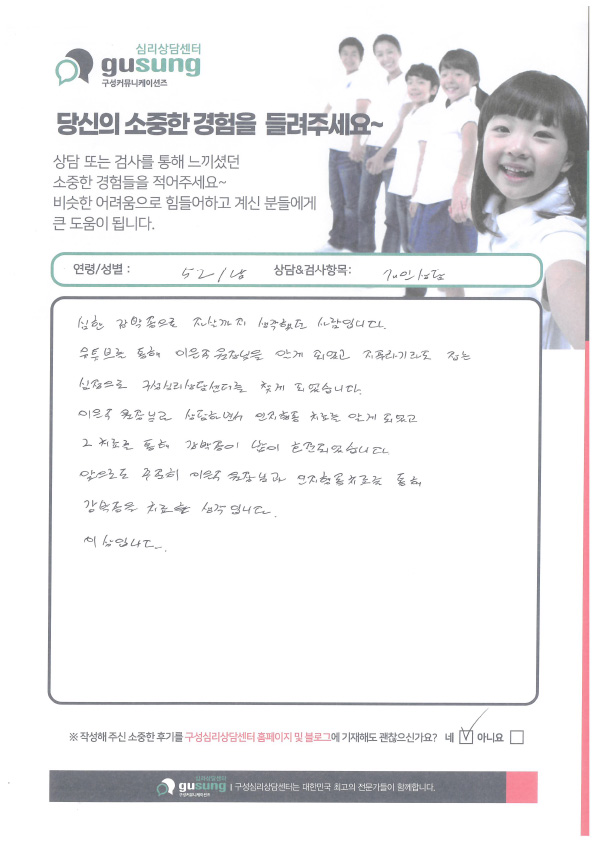 심리상담센터
gusung
구성커뮤니케이션즈
당신의 소중한 경험을 들려주세요~
상담 또는 검사를 통해 느끼셨던
소중한 경험들을 적어주세요~
비슷한 어려움으로 힘들어하고 계신 분들에게
큰 도움이 됩니다.
연령/성별 : 52/남 상담&검사항목: 개인상담
심한 강박증으로 자살까지 생각했던 사람입니다.
유투브를 통해 이은주 원장님을 알게 되었고 지푸라기라도 잡는
심정으로 구성심리상담센터를 찾게 되었습니다.
이은주 원장님과 상담하면서 인지행동 치료를 알게 되었고
그 치료를 통해 강박증이 많이 호전되었습니다
앞으로도 꾸준히 이은주 원장님과 인지행동치료를 통해
강박증을 치료할 생각입니다.
이상입니다..
※ 작성해 주신 소중한 후기를 구성심리상담센터 홈페이지 및 블로그에 기재해도 괜찮으신가요? 네 아니요
심리상담센터
gusung
구성커뮤니케이션즈
구성심리상담센터는 대한민국 최고의 전문가들이 함께합니다.